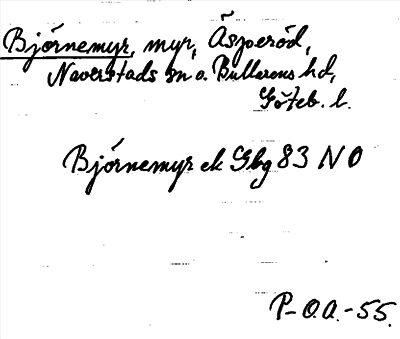 Björnemyr, myr, Åsperöd,
Naverstads sn o. Bullarens hd,
Göteb. l.
Björnemyr ek Gbg 83 NO
P-O.A.-55.